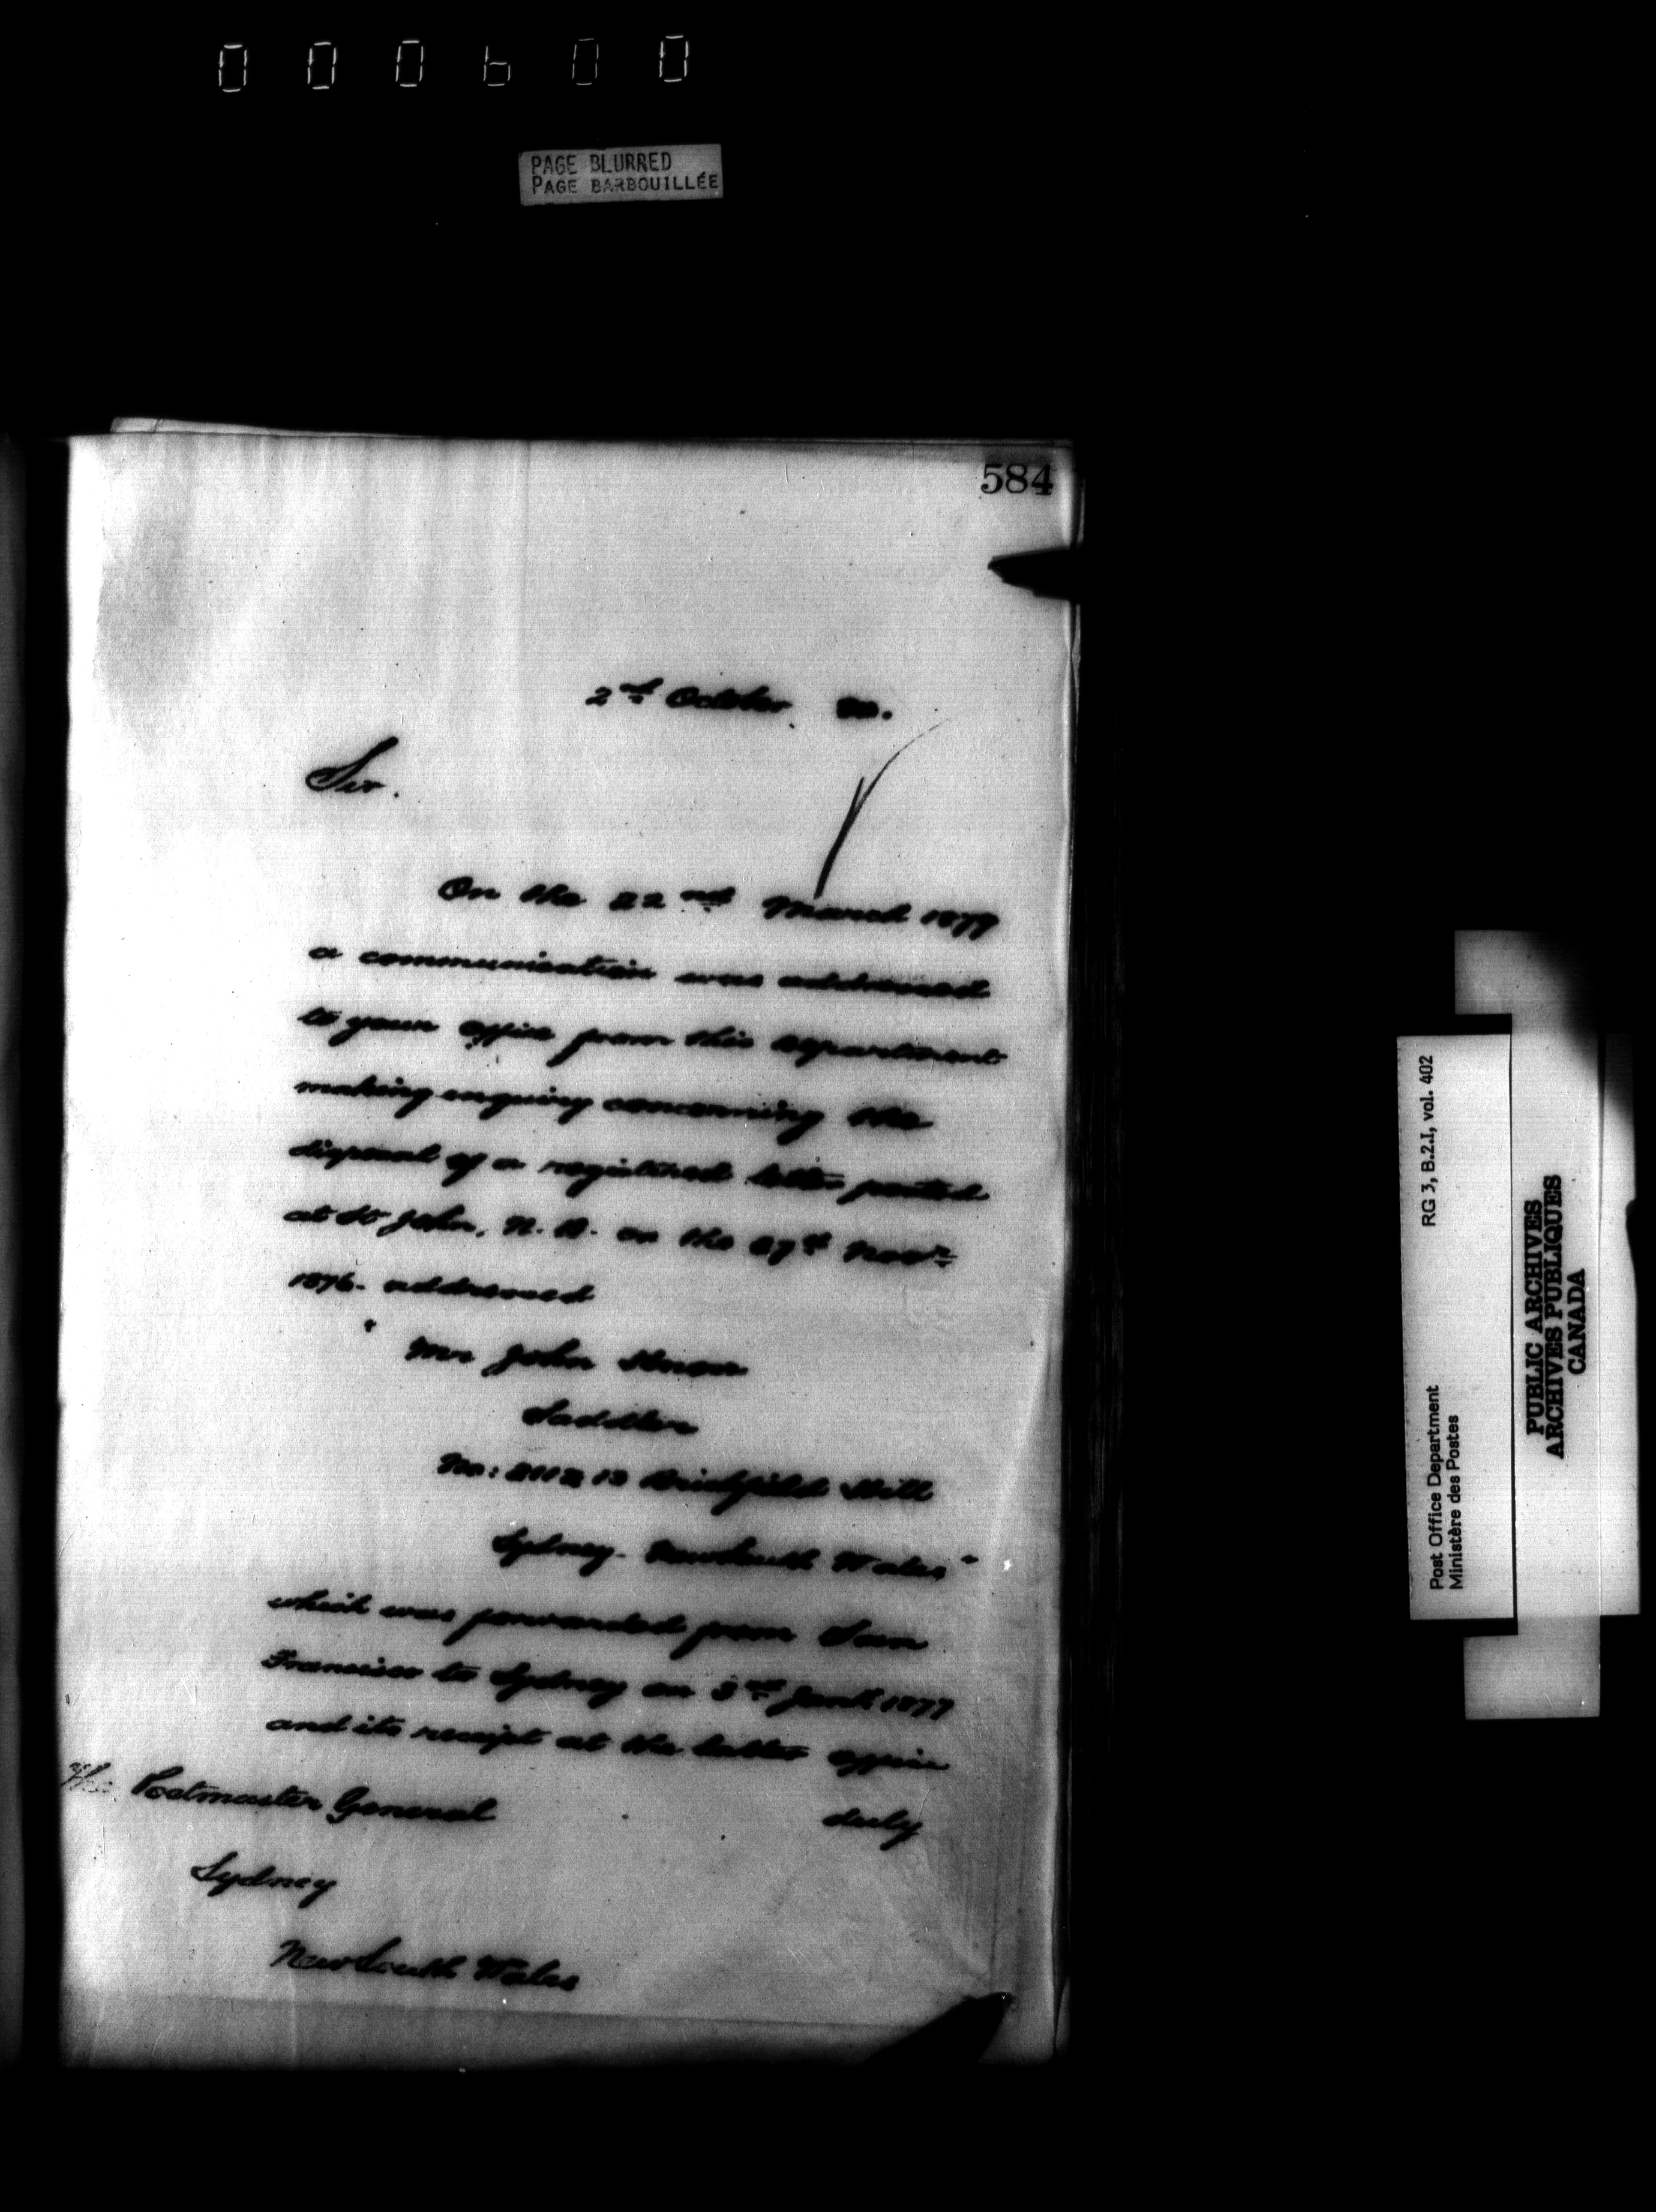 000600
PAGE BLURRED
PAGE BARBOUILLÉE
584
2nd October 80.
Sir.
On the 22nd March 1879
a communication was addressed
to your office from this department
making enquiry concerning the
disposal of a registered letter posted
at St John, N. B. on the 27th Novr
1876. addressed
" Mr John
Saddler
No: 211 & 13 Brickfield Hill
Sydney. New South Wales "
which was forwarded from San
Francisco to Sydney on 3rd Jany 1877
and its receipt at the latter office
duly
The Postmaster General
Sydney
New South Wales
Post Office Department
Ministère des Postes
RG 3, B.2.I, vol. 402
PUBLIC ARCHIVES
ARCHIVES PUBLIQUES
CANADA